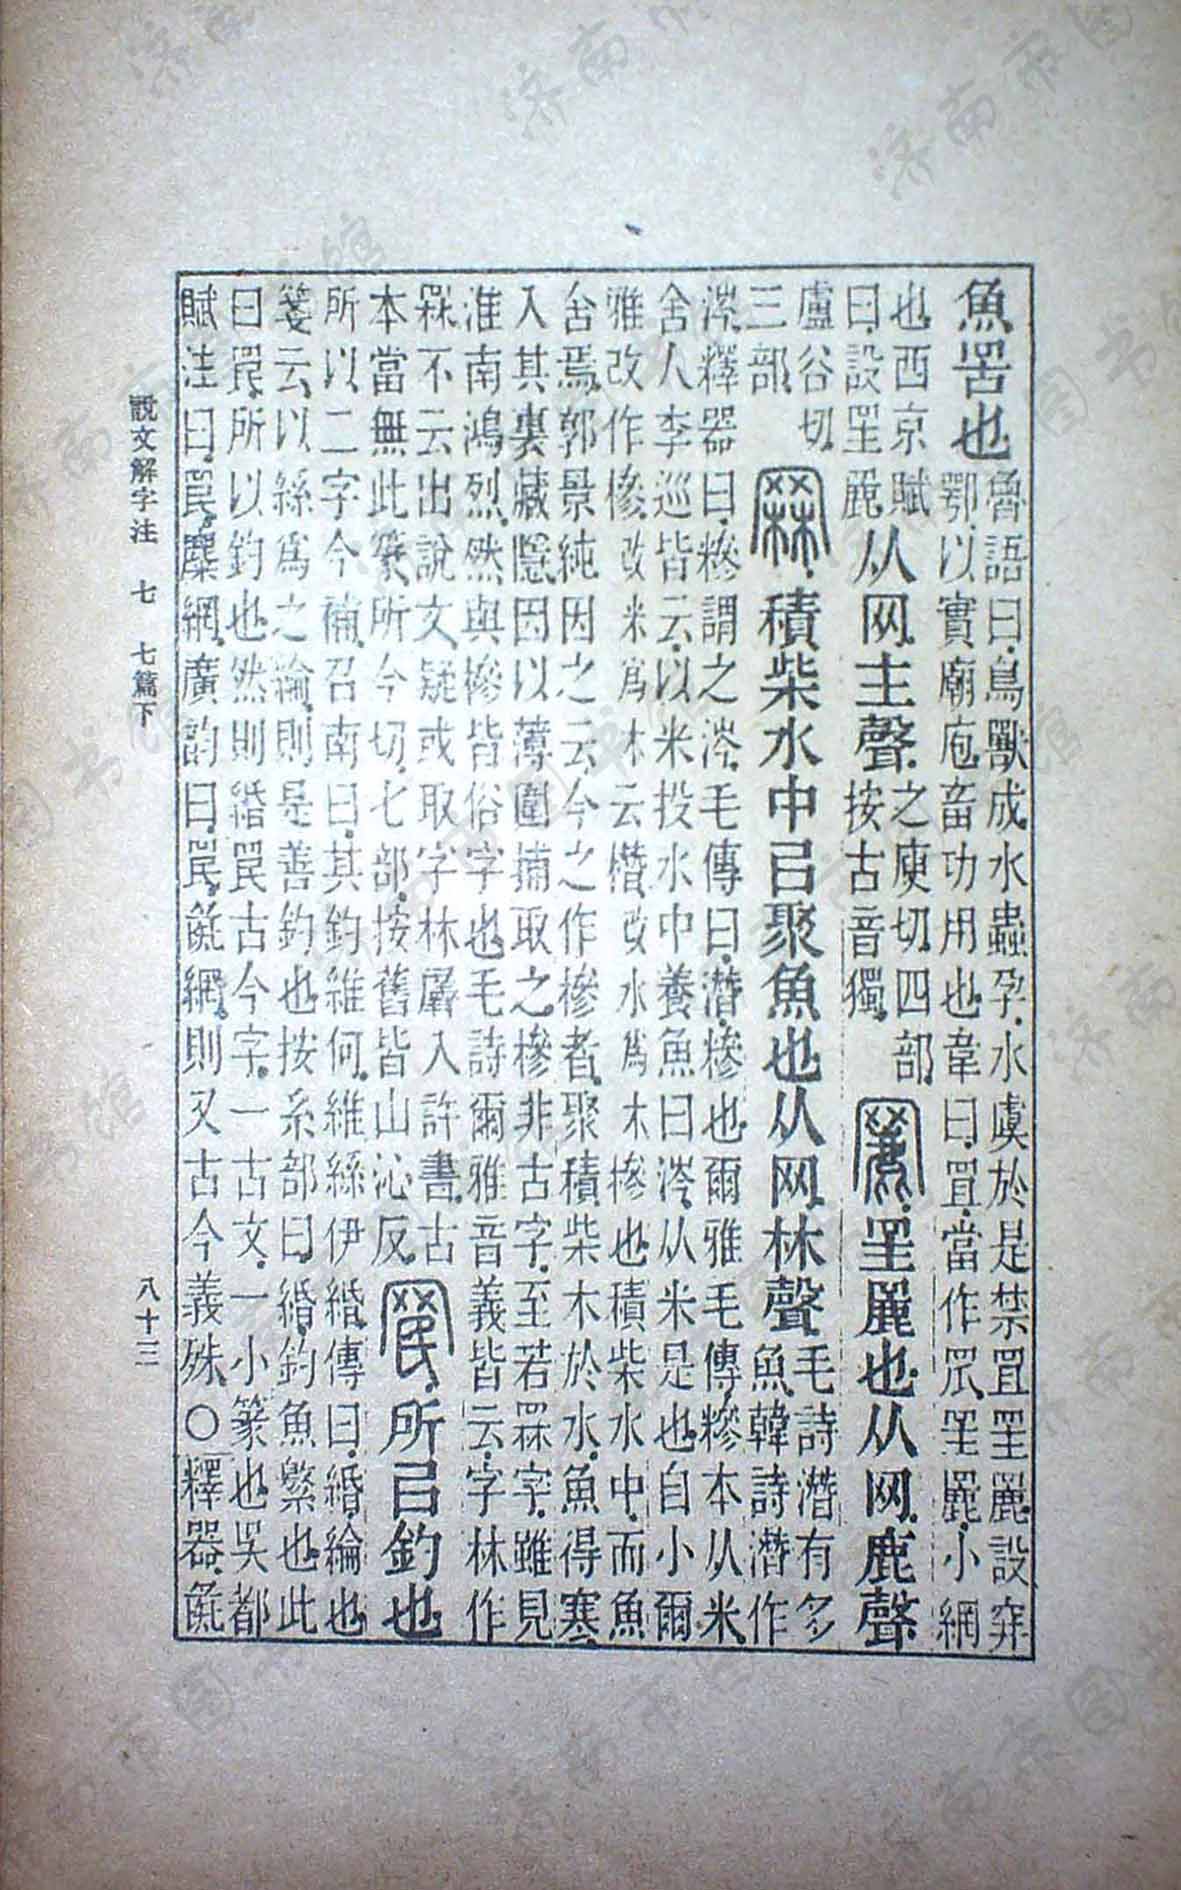 魚罟也
魯語曰鳥獸成水蟲孕水虞於是禁罝罜䍡設穽
鄂以實廟庖畜功用也韋曰罝當作罛罜䍡小網
也西京賦
曰設罜䍡
从网主聲
之庾切四部
按古音獨
䍡罜䍡也从网鹿聲
盧谷切
三部
罧積柴水中㠯聚魚也从网林聲
毛詩潛有多
魚韓詩潛作
涔釋器曰糝謂之涔毛傳曰潛糝也爾雅毛傳糝本从米
舍人李巡皆云以米投水中養魚曰涔从米是也自小爾
雅改作槮改米爲木云橬改水爲木槮也積柴水中而魚
舍焉郭景純因之云今之作槮者聚積柴木於水魚得寒
入其裏藏隱因以薄圍捕取之槮非古字至若罧字雖見
淮南鴻烈然與槮皆俗字也毛詩爾雅音義皆云字林作
罧不云出說文疑或取字林羼入許書古
本當無此篆所今切七部按舊皆山沁反
罠所㠯釣也
所以二字今補召南曰其釣維何維絲伊緡傳曰緡綸也
箋云以絲爲之綸則是善釣也按糸部曰緡釣魚繁也此
曰罠所以釣也然則緡罠古今字一古文一小篆也吳都
賦注曰罠麋網廣韵曰罠彘網則又古今義殊○釋器彘
說文解字注 七 七篇下 八十三
济南市图书馆